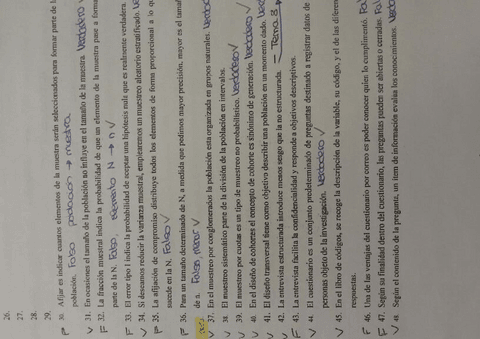 26.
27.
28.
29.
F 30. Afijar es indicar cuantos elementos de la muestra serán seleccionados para formar parte de l
población. Falso población → muestra
V 31. En ocasiones el tamaño de la población no influye en el tamaño de la muestra. Verdadero V
F 32. La fracción muestral indica la probabilidad de que un elemento de la muestra pase a forma
parte de la N. Falso, elemento N → n V
F 33. El error tipo I indica la probabilidad de aceptar una hipótesis nula que es realmente verdadera.
V 34. Si deseamos reducir la varianza muestral, emplearemos un muestreo aleatorio estratificado.
F 35. La afijación de compromiso distribuye todos los elementos de forma proporcional a lo qu
sucede en la N. Falso V
F 36. Para un tamaño determinado de N, a medida que pedimos mayor precisión, mayor es el tamañ
de n. Falso, V
V 37. En el muestreo por conglomerados la población esta organizada en grupos naturales.
V 38. El muestreo sistemático parte de la división de la población en intervalos.
V 39. El muestreo por cuotas es un tipo de muestreo no probabilístico. Verdadero V
V 40. En el diseño de cohortes el concepto de cohorte es sinónimo de generación. Verdadero V
V 41. El diseño transversal tiene como objetivo describir una población en un momento dado.
V 42. La entrevista estructurada introduce menos sesgo que la no estructurada. – Tema 8
F 43. La entrevista facilita la confidencialidad y responde a objetivos descriptivos.
V 44. El cuestionario es un conjunto predeterminado de preguntas destinado a registrar datos de
personas objeto de la investigación. Verdadero V
V 45. En el libro de códigos, se recoge la descripción de la variable, su código, y el de las diferen
respuestas.
F 46. Una de las ventajas del cuestionario por correo es poder conocer quien lo cumplimentó.
F 47. Según su finalidad dentro del cuestionario, las preguntas pueden ser abiertas o cerradas.
V 48. Según el contenido de la pregunta, un ítem de información evalúa los conocimientos.